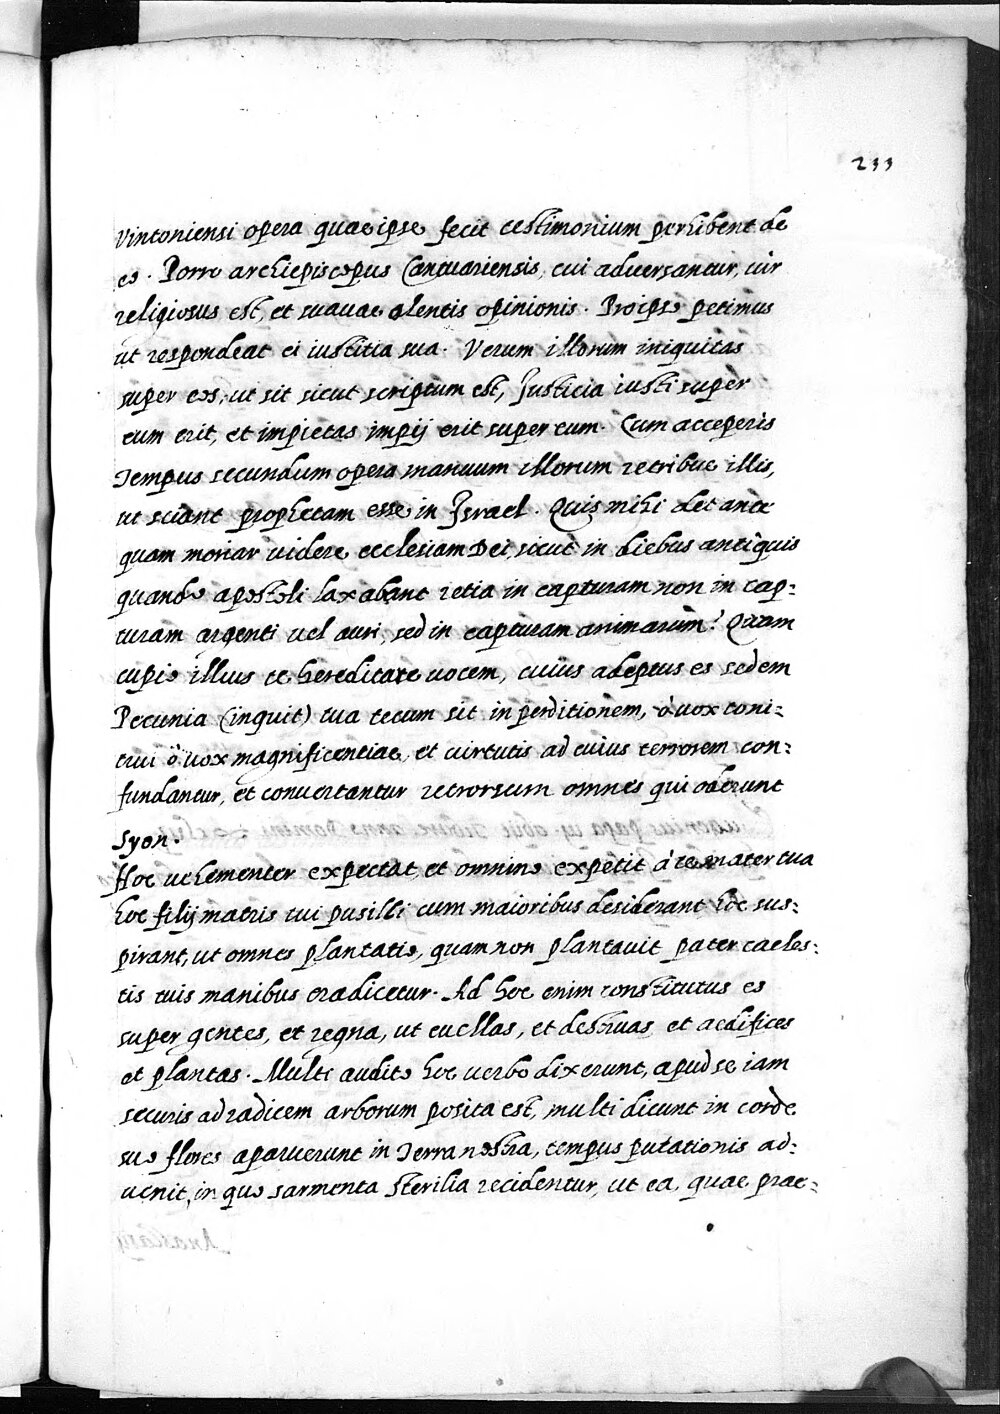 233
Vintoniensi opera quae ipse fecit testimonium perhibent de
eo. Porro archiepiscopus Cantuariensis, cui adversantur, vir
religiosus est, et suavae olentis opinionis. Pro ipso petimus
ut respondeat ei iustitia sua. Verum illorum iniquitas
super eos, ut sit sicut scriptum est, Justicia iusti super
eum erit, et impietas impij erit super eum. Cum acceperis
Tempus secundum opera manuum illorum retribue illis,
ut sciant prophetam esse in Israel. Quis mihi det ante
quam moriar videre ecclesiam Dei, sicut in diebus antiquis
quando apostoli laxabant retia in capturam non in cap:
turam argenti vel auri, sed in capturam animarum? Quam
cupio illius te hereditare vocem, cuius adeptus es sedem
Pecunia (inquit) tua tecum sit in perditionem, ò vox toni:
trui ò vox magnificentiae, et virtutis ad cuius terrorem con:
fundantur, et convertantur retrorsum omnes qui oderunt
Syon.
Hoc vehementer expectat, et omnino expetit à te mater tua
hoc filij matris tui pusilli cum maioribus desiderant hoc sus:
pirant, ut omnes plantatio, quam non plantavit pater caeles:
tis tuis manibus eradicetur. Ad hoc enim constitutus es
super gentes, et regna, ut evellas, et destruas et aedifices
et plantas. Multi audito hoc verbo dixerunt, apud se iam
securis ad radicem arborum posita est, multi dicunt in corde
suo flores aparuerunt in Terra nostra, tempus putationis ad:
venit, in quo sarmenta sterilia recidentur, ut ea, quae prae: